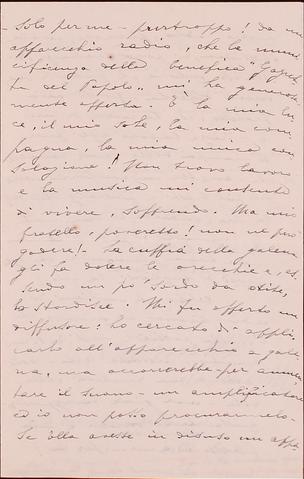 Solo per me - purtroppo! da un
apparecchio radio, che la muni
ficenza della benefica "Gazzet
ta del Popolo" mi ha generosa
mente offerta. È la mia lu
ce, il mio sole, la mia com
pagna, la mia unica con
solazione! Non trovo lavoro
e la musica mi contenta
di vivere, soffrendo. Ma mio
fratello, poveretto! non ne può
godere! La cuffia della galena
gli fa dolere le orecchie e, es
sendo un po' sordo da otite,
lo stordisce. Mi fu offerto un
diffusore: ho cercato di appli
carlo all'apparecchio a gale
na, ma occorrerebbe - per aumen
tare il suono - un amplificatore
ed io non posso procurarmelo.
Se ella avesse in disuso un appa